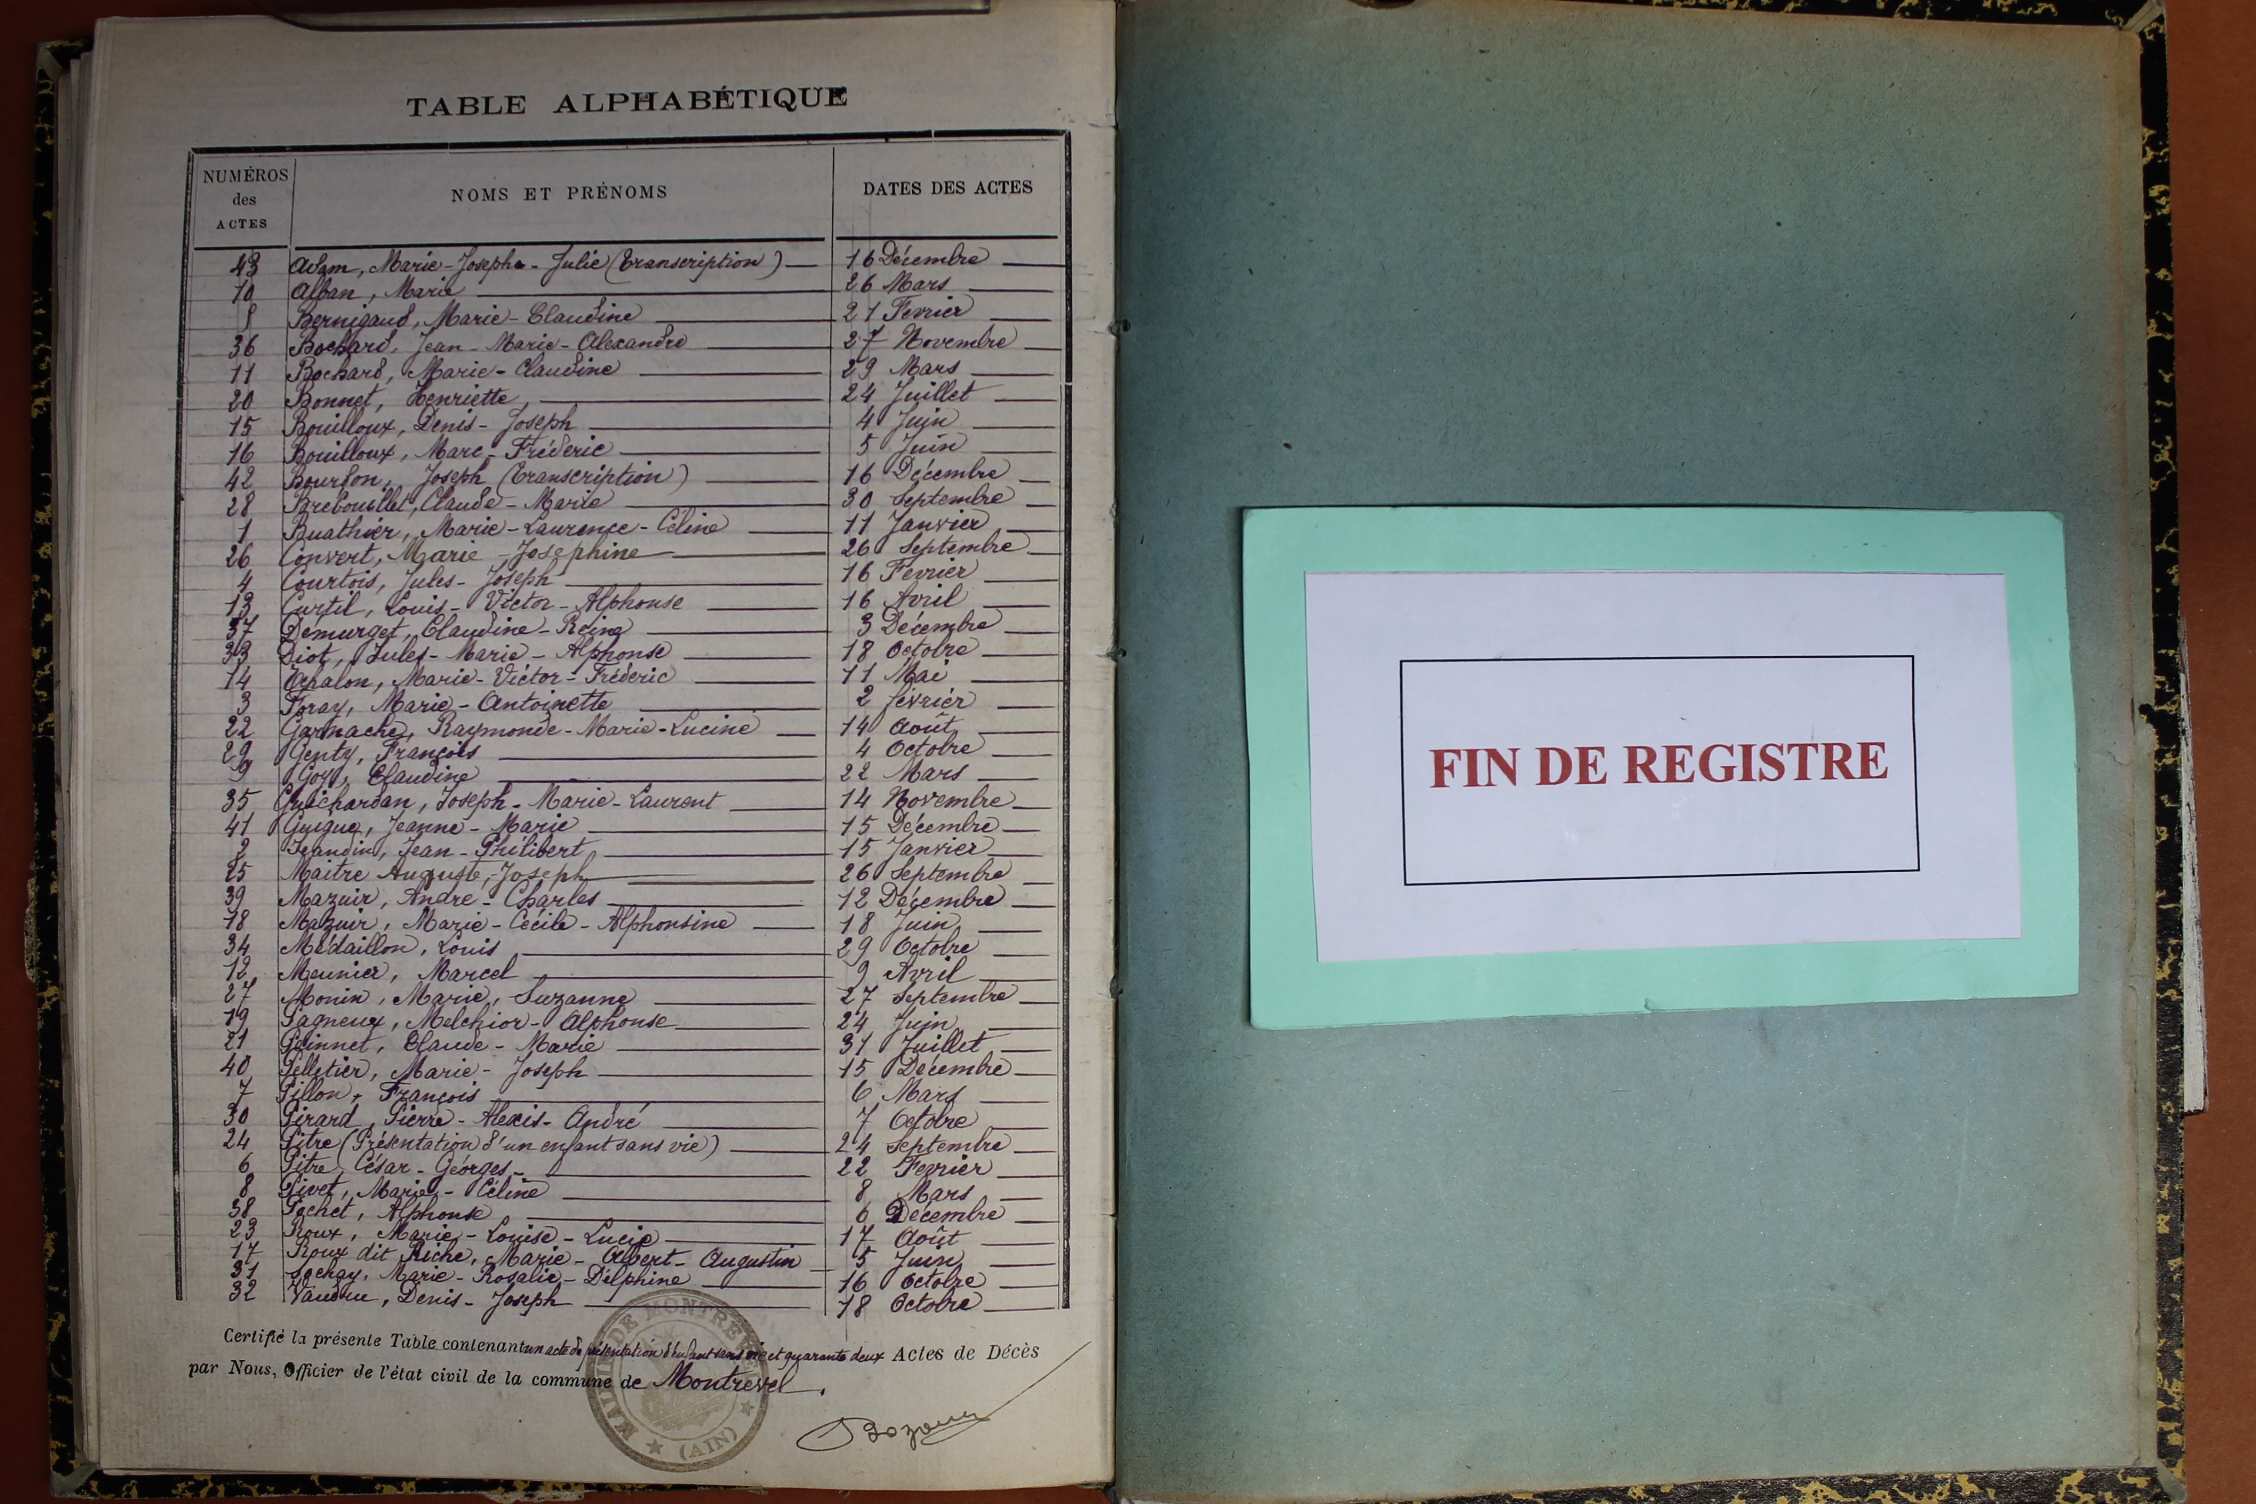 TABLE ALPHABÉTIQUE
NUMÉROS des ACTES NOMS ET PRÉNOMS DATES DES ACTES
43 Adam, Marie-Josephe-Julie (Transcription) 16 Décembre
10 Alban, Marie 26 Mars
Bernigaud, Marie-Claudine 21 Fevrier
36 Bochard, Jean-Marie-Alexandre 27 Novembre
11 Bochard, Marie-Claudine 29 Mars
20 Bonnet, Henriette 24 Juillet
15 Bouilloux, Denis-Joseph 4 Juin
16 Bouilloux, Marc-Fréderic 5 Juin
42 Bourdon, Joseph (Transcription) 16 Décembre
28 Brebouillet, Claude-Marie 30 Septembre
1 Buathier, Marie-Laurence-Céline 11 Janvier
26 Convert, Marie-Josephine 26 Septembre
4 Courtois, Jules-Joseph 16 Fevrier
13 Curtil, Louis-Victor-Alphonse 16 Avril
37 Demurget, Claudine-Reine 3 Décembre
33 Diot, Jules-Marie-Alphonse 18 Octobre
14 Marie-Victor-Fréderic 11 Mai
3 Foray, Marie-Antoinette 2 février
22 Garnache, Raymonde-Marie-Lucine 14 Août
29 Genty, François 4 Octobre
9 Goy, Claudine 22 Mars
35 Guichardan, Joseph-Marie-Laurent 14 Novembre
41 Guigue, Jeanne-Marie 15 Décembre
2 Jean-Philibert 15 Janvier
25 Maitre Auguste, Joseph 26 Septembre
39 Mazuir, André-Charles 12 Décembre
18 Mazuir, Marie-Cécile-Alphonsine 18 Juin
34 Médaillon, Louis 29 Octobre
12 Meunier, Marcel 9 Avril
27 Monin, Marie, Suzanne 27 Septembre
19 Pagneux, Melchior-Alphonse 24 Juin
21 Claude-Marie 31 Juillet
40 Pelletier, Marie-Joseph 15 Décembre
7 Pillon, François 6 Mars
30 Pirard, Pierre-Alexis-André 7 Octobre
24 Pitre (Présentation d'un enfant sans vie) 24 Septembre
6 Pitre, César-Géorges 22 Fevrier
8 Pivet, Marie-Céline 8 Mars
38 Pochet, Alphonse 6 Décembre
23 Roux, Marie-Louise-Lucie 17 Août
17 Roux dit Riche, Marie-Albert-Augustin 5 Juin
31 Sochay, Marie-Rosalie-Délphine 16 Octobre
32 Denis-Joseph 18 Octobre
Certifié la présente Table contenant un acte de présentation d'enfant sans vie et quarante deux Actes de Décès
par Nous, Officier de l'état civil de la commune de Montrevel.
MAIRIE DE MONTREVEL
(AIN)
FIN DE REGISTRE